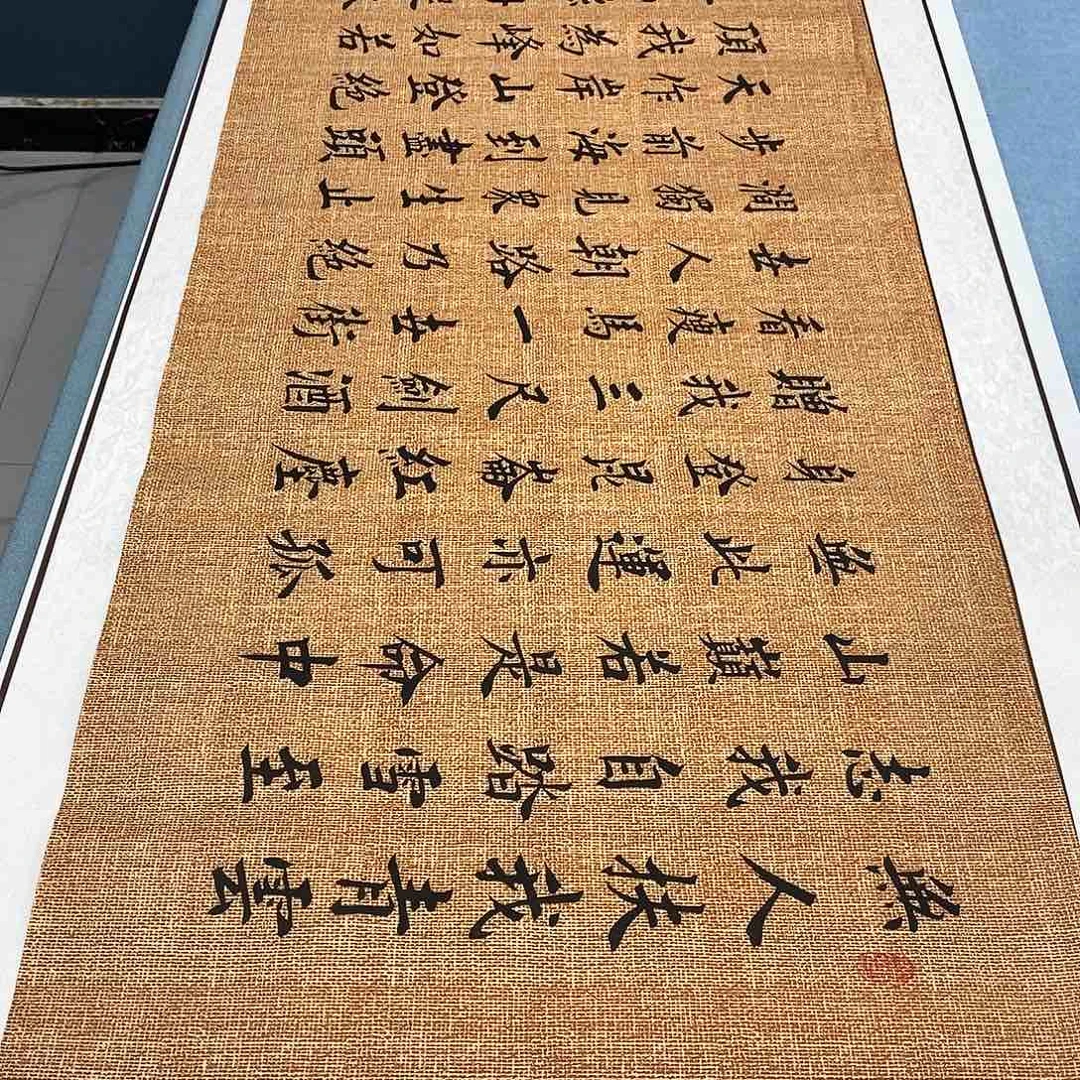 無人扶我青雲
志我自踏雪至
山巔若是命中
無此運亦可孤
身登昆崙紅塵
贈我三尺劍酒
肴瘦馬一世街
世人朝路乃絕
澗獨見衆生止
步前海到盡頭
天作岸山登絕
頂我為峰如若